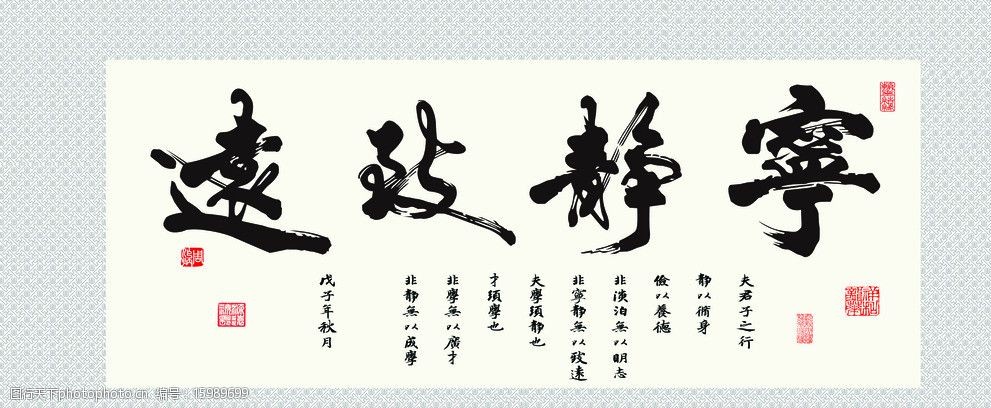 寧靜致遠
夫君子之行
靜以脩身
儉以養德
非淡泊無以明志
非寧靜無以致遠
夫學須靜也
才須學也
非學無以廣才
非靜無以成學
戊子年秋月
图行天下photophoto.cn 编号：15989699